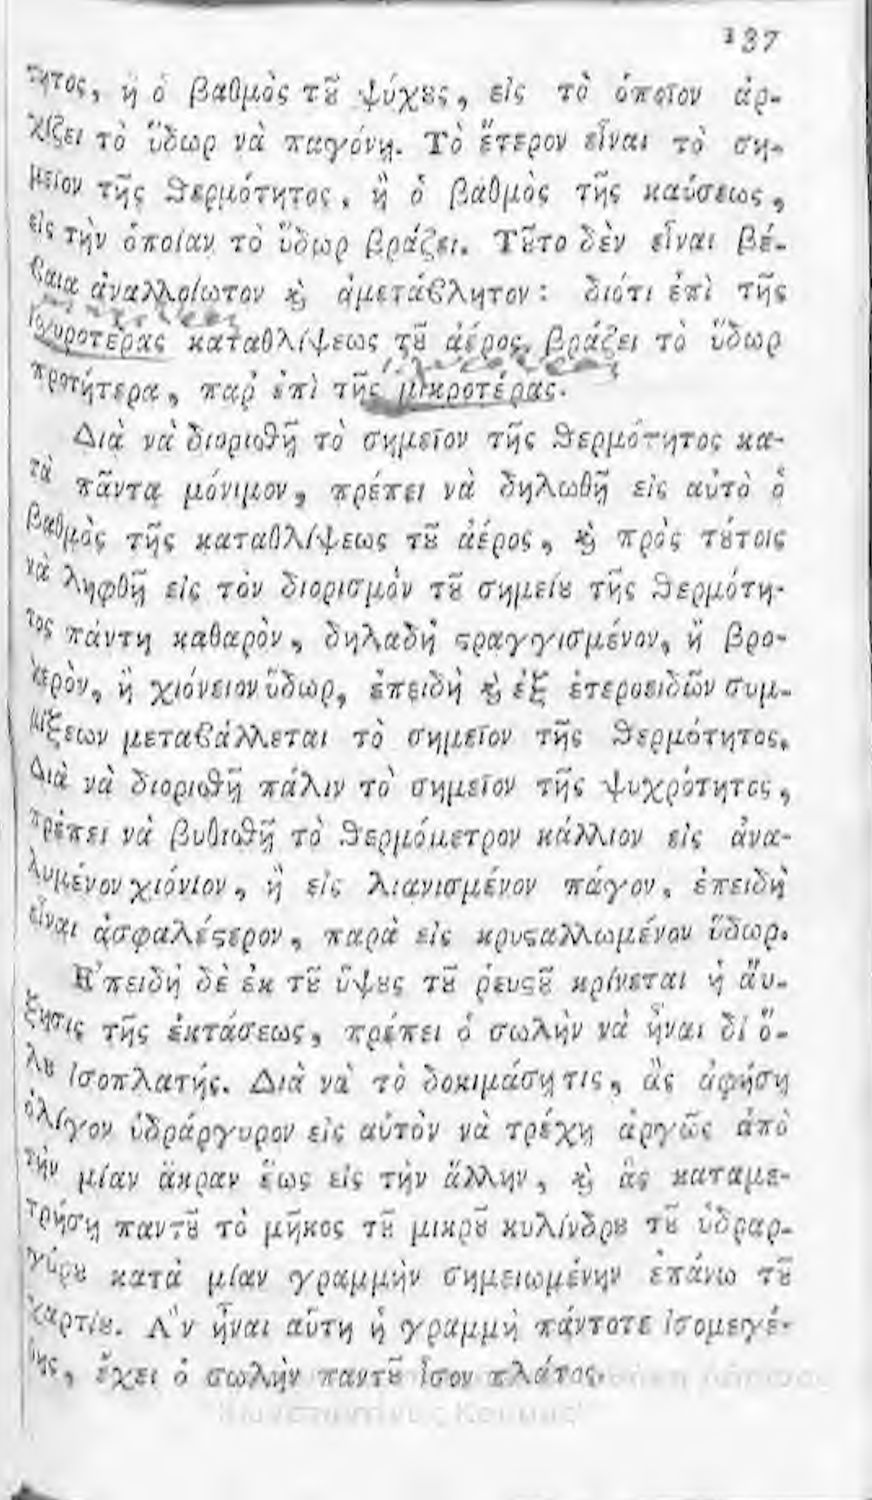 137
τητος, ἢ ὁ βαθμὸς τȣ͂ ψύχȣς, εἰς τὸ ὁποῖον ἀρ-
χίζει τὸ ὕδωρ νὰ παγόνῃ. Τὸ ἕτερον εἶναι τὸ ση-
μεῖον τῆς θερμότητος, ἢ ὁ βαθμὸς τῆς καύσεως,
εἰς τὴν ὁποίαν τὸ ὕδωρ βράζει. Τȣ͂το δὲν εἶναι βέ-
βαια ἀναλλοίωτον ϗ̀ ἀμετάβλητον: διότι ἐπὶ τῆς
ἰσχυροτέρας καταθλίψεως τȣ͂ ἀέρος, βράζει τὸ ὕδωρ
προτήτερα, παρ' ἐπὶ τῆς μικροτέρας.
Διὰ νὰ διορισθῇ τὸ σημεῖον τῆς θερμότητος κα-
τὰ πάντα μόνιμον, πρέπει νὰ δηλωθῇ εἰς αὐτὸ ὁ
βαθμὸς τῆς καταθλίψεως τȣ͂ ἀέρος, ϗ̀ πρὸς τȣ́τοις
νὰ ληφθῇ εἰς τὸν διορισμὸν τȣ͂ σημείȣ τῆς θερμότη-
τος πάντη καθαρὸν, δηλαδὴ ϛραγγισμένον, ἢ βρο-
χερὸν, ἢ χιόνειον ὕδωρ, ἐπειδὴ ϗ̀ ἐξ ἑτεροειδῶν συμ-
μίξεων μεταβάλλεται τὸ σημεῖον τῆς θερμότητος.
Διὰ νὰ διορισθῇ πάλιν τὸ σημεῖον τῆς ψυχρότητος,
πρέπει νὰ βυθισθῇ τὸ θερμόμετρον κάλλιον εἰς ἀνα-
λυμένον χιόνιον, ἢ εἰς λιανισμένον πάγον, ἐπειδὴ
εἶναι ἀσφαλέϛερον, παρὰ εἰς κρυϛαλλωμένον ὕδωρ.
Ἐπειδὴ δὲ ἐκ τȣ͂ ὕψȣς τȣ͂ ῥευϛȣ͂ κρίνεται ἡ ἄυ-
ξησις τῆς ἐκτάσεως, πρέπει ὁ σωλὴν νὰ ἦναι δι' ὅ-
λȣ ἰσοπλατής. Διὰ νὰ τὸ δοκιμάσῃ τις, ἂς ἀφήσῃ
ὀλίγον ὑδράργυρον εἰς αὐτὸν νὰ τρέχῃ ἀργῶς ἀπὸ
τὴν μίαν ἄκραν ἕως εἰς τὴν ἄλλην, ϗ̀ ἂς καταμε-
τρήσῃ παντȣ͂ τὸ μῆκος τȣ͂ μικρȣ͂ κυλίνδρȣ τȣ͂ ὑδραρ-
γύρȣ κατὰ μίαν γραμμὴν σημειωμένην ἐπάνω τȣ͂
χαρτίȣ. Ἂν ἦναι αὕτη ἡ γραμμὴ πάντοτε ἰσομεγέ-
θης, ἔχει ὁ σωλὴν παντȣ͂ ἶσον πλάτος.